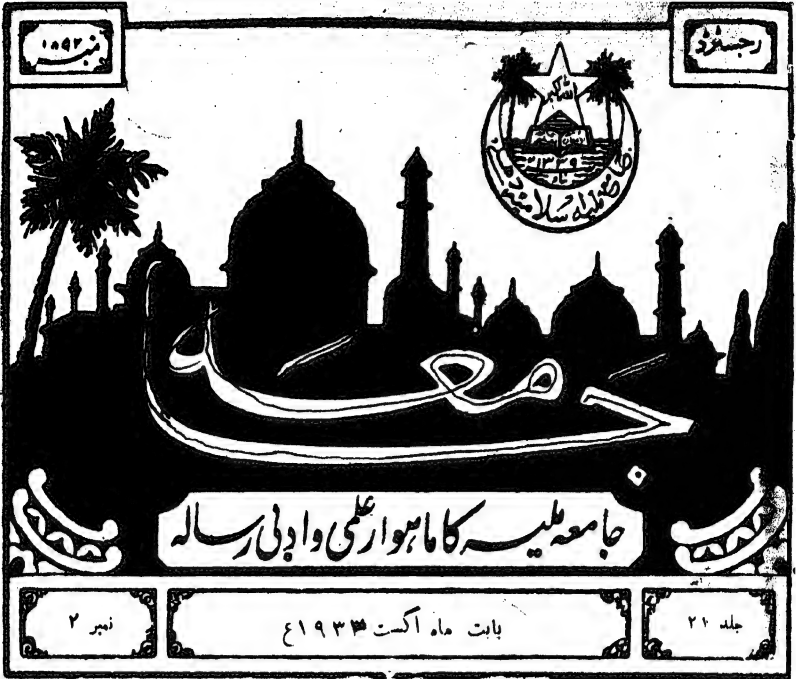 رجسٹرڈ
نمبر ۱۸۹۲
اللہ اکبر
۱۳۳۹
جامعہ ملیہ اسلامیہ دہلی
جامعہ
جامعہ ملیہ کا ماہوار علمی وادبی رسالہ
جلد ۲۱
بابت ماہ اگست ۱۹۳۳ع
نمبر ۲